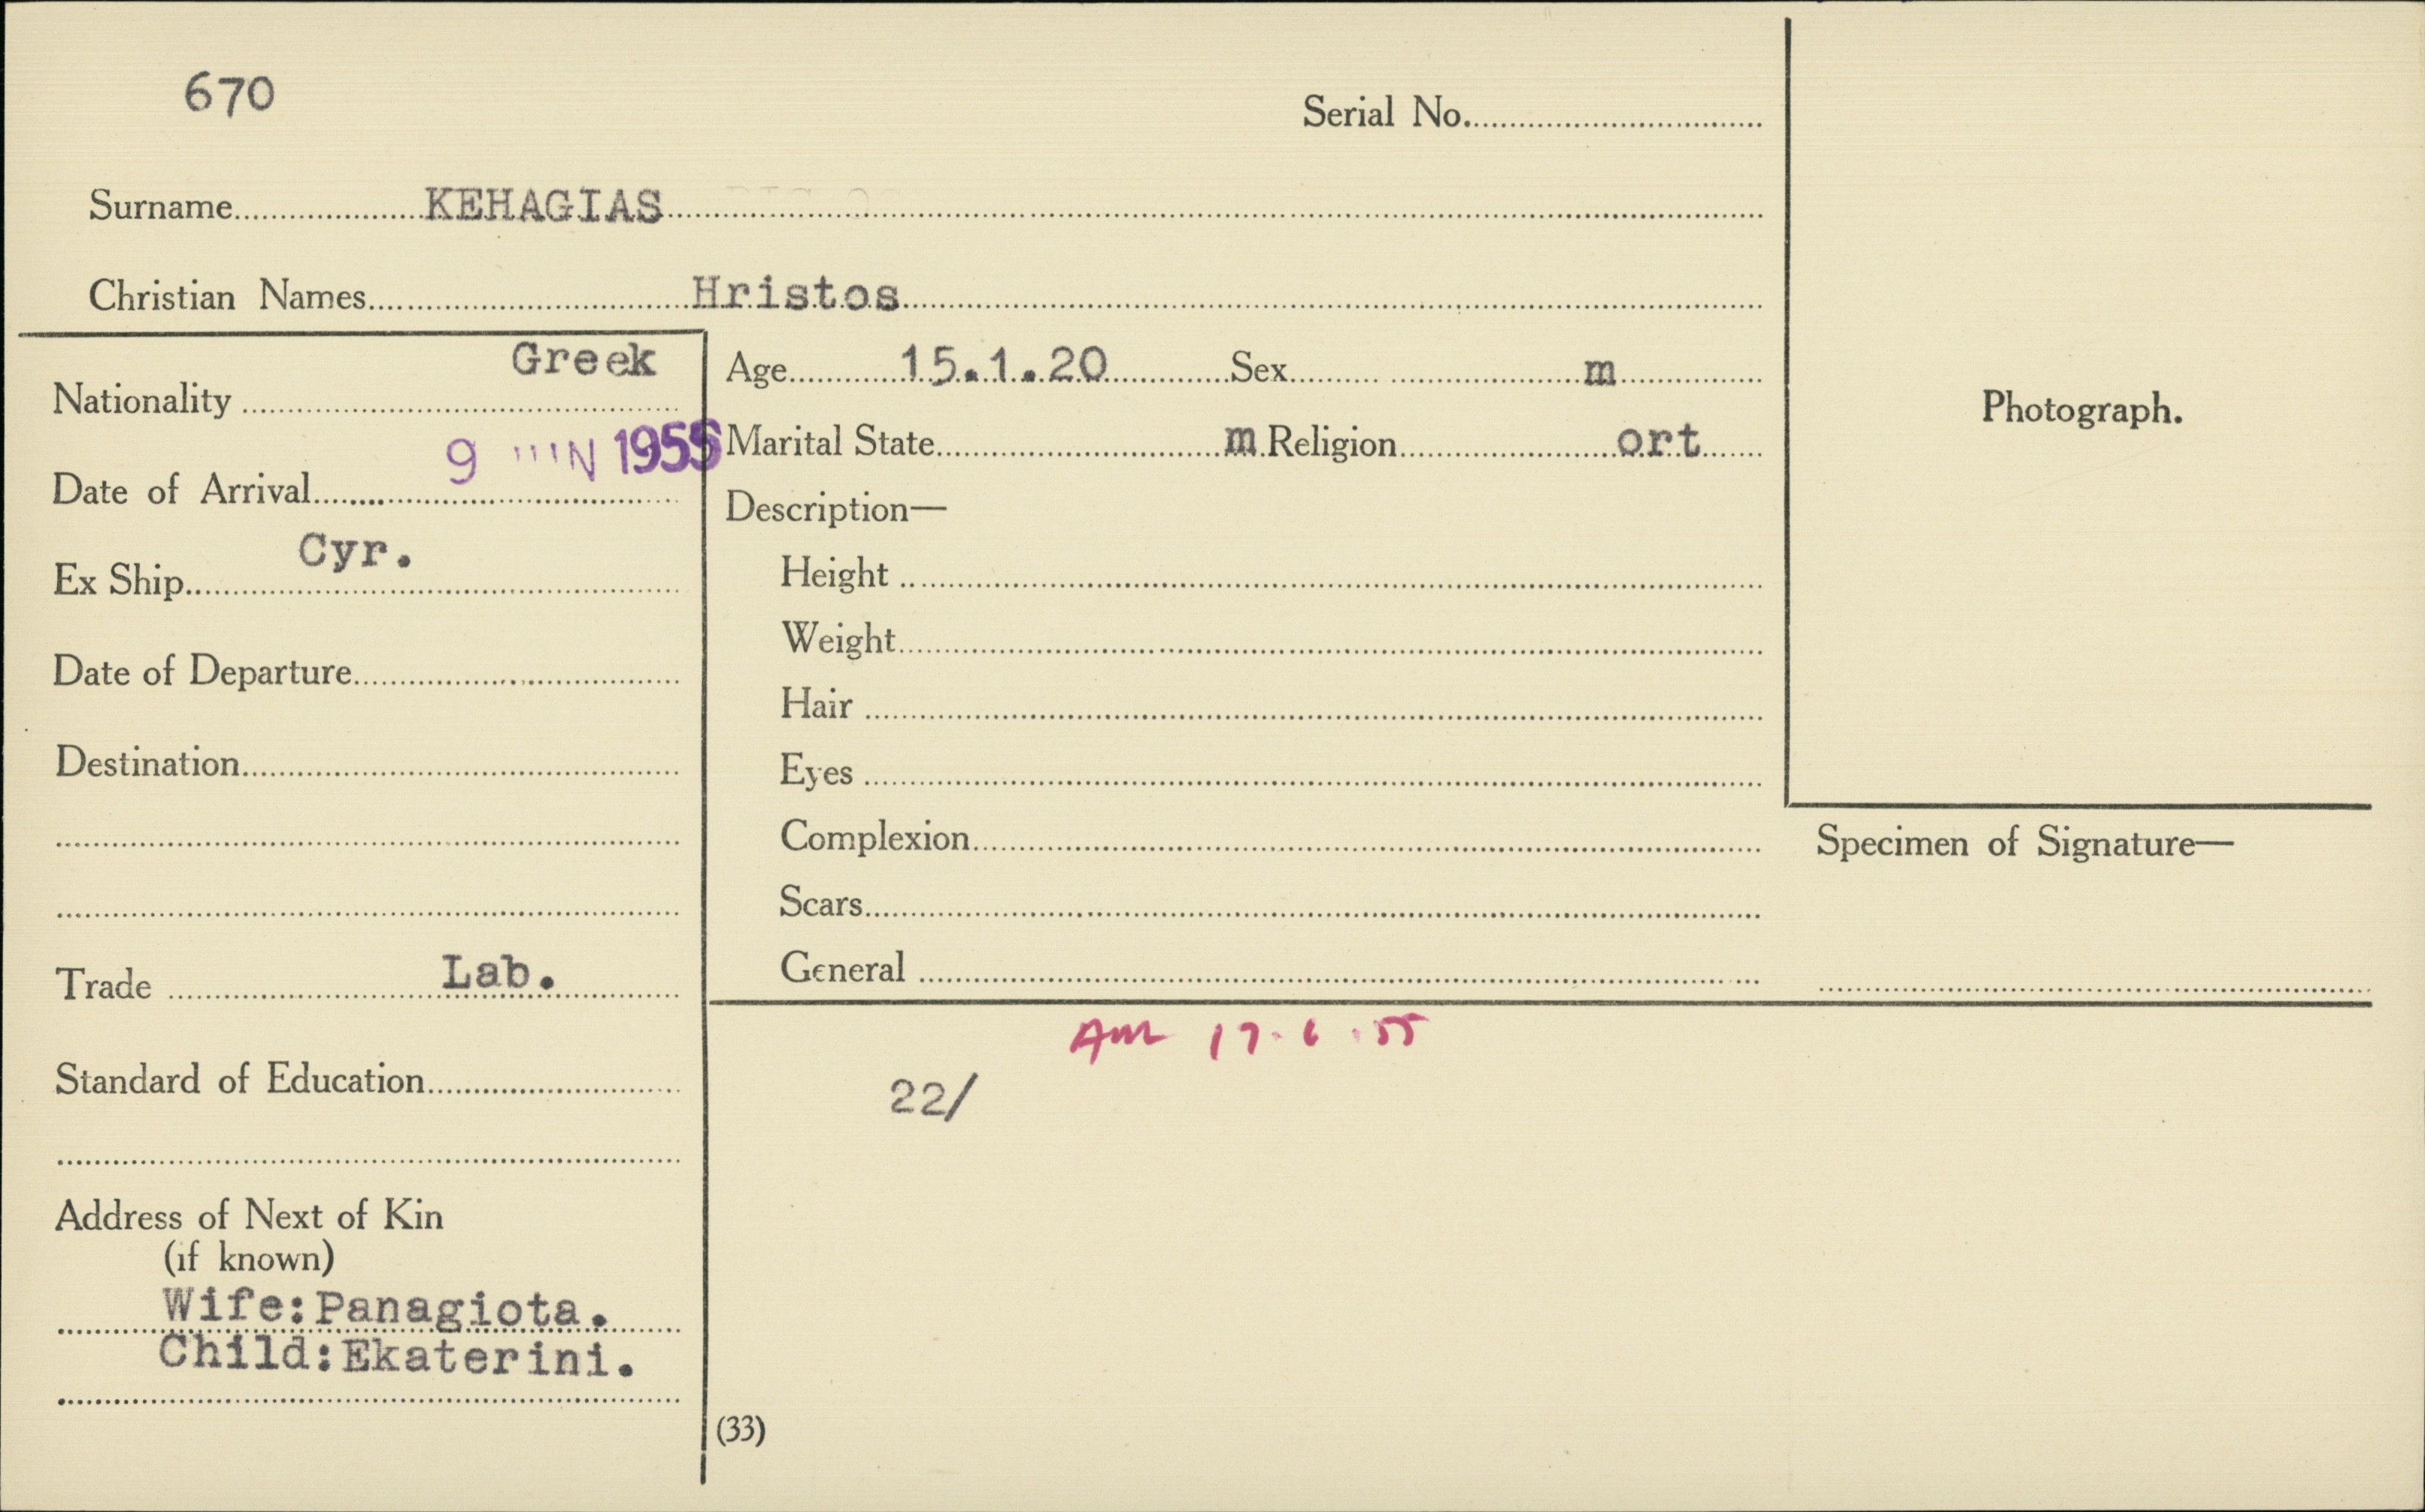 670
Serial No.
Surname KEHAGIAS
Christian Names Hristos
Greek
Nationality
Age 15.1.20 Sex m
Photograph.
Marital State m Religion ort
9 JUN 1955
Date of Arrival
Description—
Cyr.
Ex Ship
Height
Weight
Date of Departure
Hair
Destination
Eyes
Complexion
Specimen of Signature—
Scars
Trade Lab.
General
17.6.55
Standard of Education
22/
Address of Next of Kin
(if known)
Wife:Panagiota.
Child:Ekaterini.
(33)